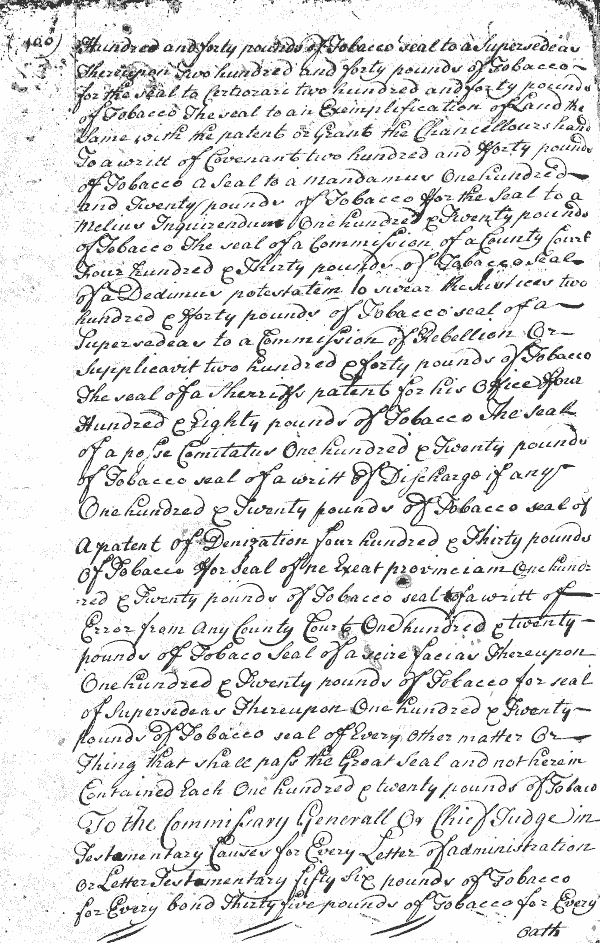 (400)
Hundred and forty pounds of Tobacco seal to a Supersedeas
thereupon Two hundred and forty pounds of Tobacco
for the seal to Certiorari two hundred and forty pounds
of Tobacco The seal to an Exemplification of Land the
Same with the patent or Grant the Chancellours hand
To a writt of Covenant two hundred and fforty pounds
of Tobacco a Seal to a mandamus One hundred
and Twenty pounds of Tobacco ffor the Seal to a
Melius Inquirendum One hundred & Twenty pounds
of Tobacco The seal of a Commission of a County Court
Four hundred & Thirty pounds of Tobacco seal
of a Dedimus potestatem to swear the Justices two
hundred & fforty pounds of Tobacco seal of a
Supersedeas to a Commission of Rebellion Or
Supplicavit two hundred & fforty pounds of Tobacco
The seal of a Sherriffs patent for his Office ffour
Hundred & Eighty pounds of Tobacco The seal
of a posse Comitatus One hundred & Twenty pounds
of Tobacco seal of a writt of Discharge if any
One hundred & Twenty pounds of Tobacco seal of
A patent of Denization four hundred & Thirty pounds
Of Tobacco ffor Seal of ne Exeat provinciam One hund
red & Twenty pounds of Tobacco seal of a writt of
Error from Any County Court One hundred & twenty
pounds of Tobaco Seal of a scire facias Thereupon
One hundred & Twenty pounds of Tobacco for seal
of Supersedeas Thereupon One hundred & Twenty
pounds of Tobacco seal of Every other matter Or
Thing that shall pass the Great Seal and not herein
Contained Each One hundred & twenty pounds of Tobaco
To the Commissary Generall Or Chief Judge in
Testamentary Causes for Every Letter of administration
Or Letter Testamentary fifty six pounds of Tobacco
for Every bond Thirty five pounds of Tobacco for Every
Oath